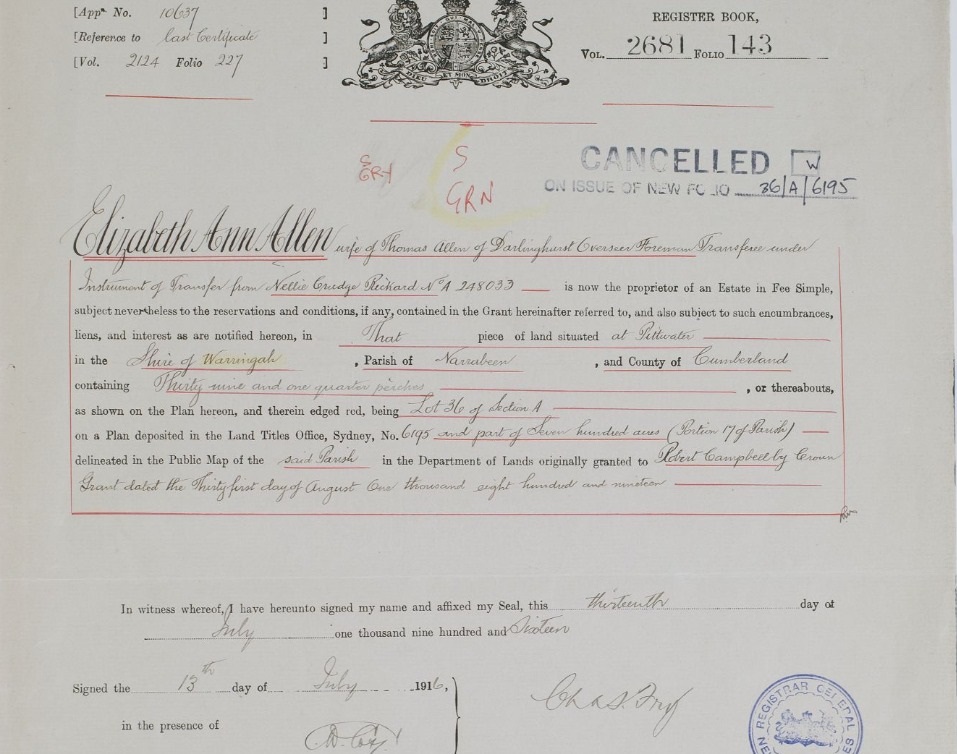 [Appn. No. 10637 ]
[Reference to Last Certificate ]
[Vol. 2124 Folio 227 ]
DIEU ET MON DROIT
REGISTER BOOK,
VOL. 2681 FOLIO 143
S
GRN
CANCELLED W
ON ISSUE OF NEW FOLIO 36/A/6195
Elizabeth Ann Allen wife of Thomas Allen of Darlinghurst Overseer Foreman Transferee under
Instrument of Transfer from Nellie Crudge Rickard No A 248033 is now the proprietor of an Estate in Fee Simple,
subject nevertheless to the reservations and conditions, if any, contained in the Grant hereinafter referred to, and also subject to such encumbrances,
liens, and interest as are notified hereon, in That piece of land situated at Pittwater
in the Shire of Warringah, Parish of Narrabeen, and County of Cumberland
containing Thirty nine and one quarter perches, or thereabouts,
as shown on the Plan hereon, and therein edged red, being Lot 36 of Section A
on a Plan deposited in the Land Titles Office, Sydney, No. 6195 and part of Seven hundred acres (Portion 17 of Parish)
delineated in the Public Map of the said Parish in the Department of Lands originally granted to Robert Campbell by Crown
Grant dated the Thirty first day of August One thousand eight hundred and nineteen
In witness whereof, I have hereunto signed my name and affixed my Seal, this thirteenth day of
July one thousand nine hundred and Sixteen
Signed the 13th day of July 1916,
in the presence of
REGISTRAR GENERAL